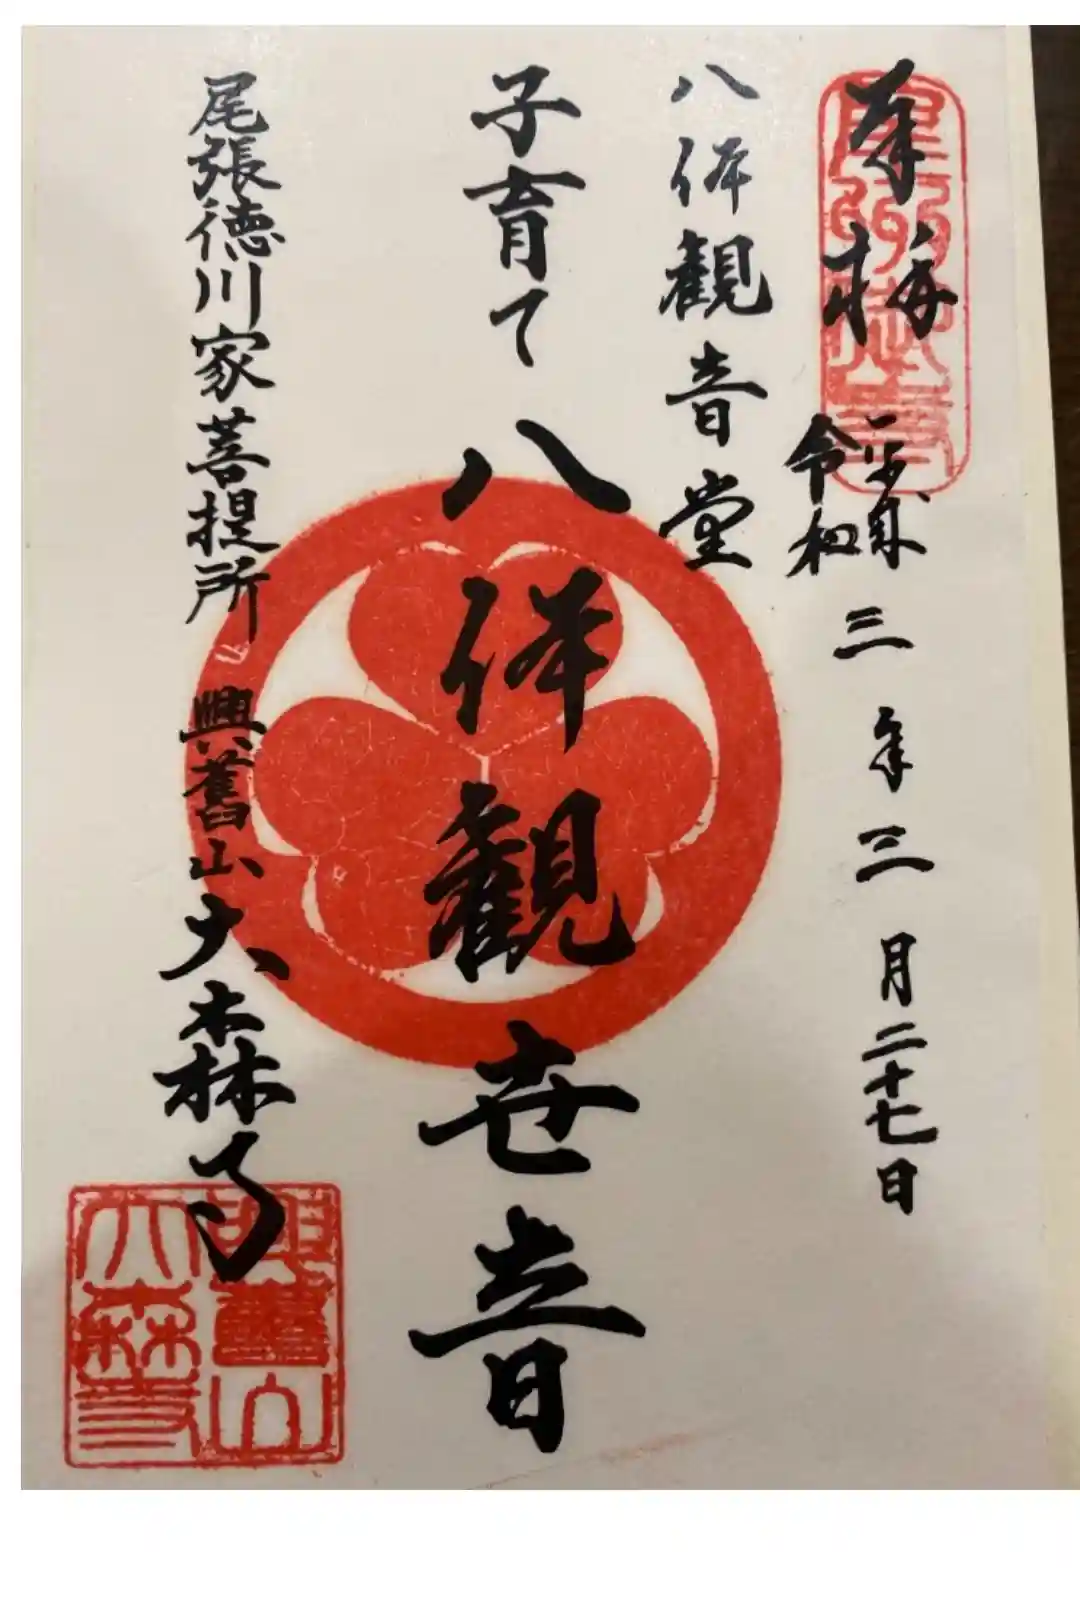 奉拝
令和
三年三月二十七日
八体観音堂
子育て 八体観世音
尾張徳川家菩提所 興舊山大森寺
興舊山
大森寺